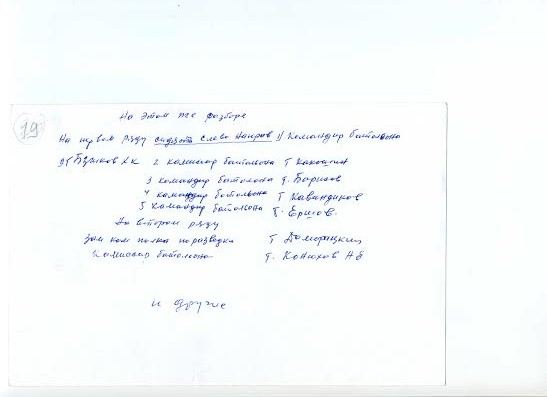 19
На этом же разборе
На первом ряду сидять слево направ 1) Командир батольона
Бузиков 2 камисар батольона Т
3 командир батолона т. Борисов
4 командир батольона Т Кавандиков
5 Командир батольона Т. Ершов.
На втором ряду
Зам ком полка поразведки Т
Камисар батольона т. Конюхов НБ
и другие